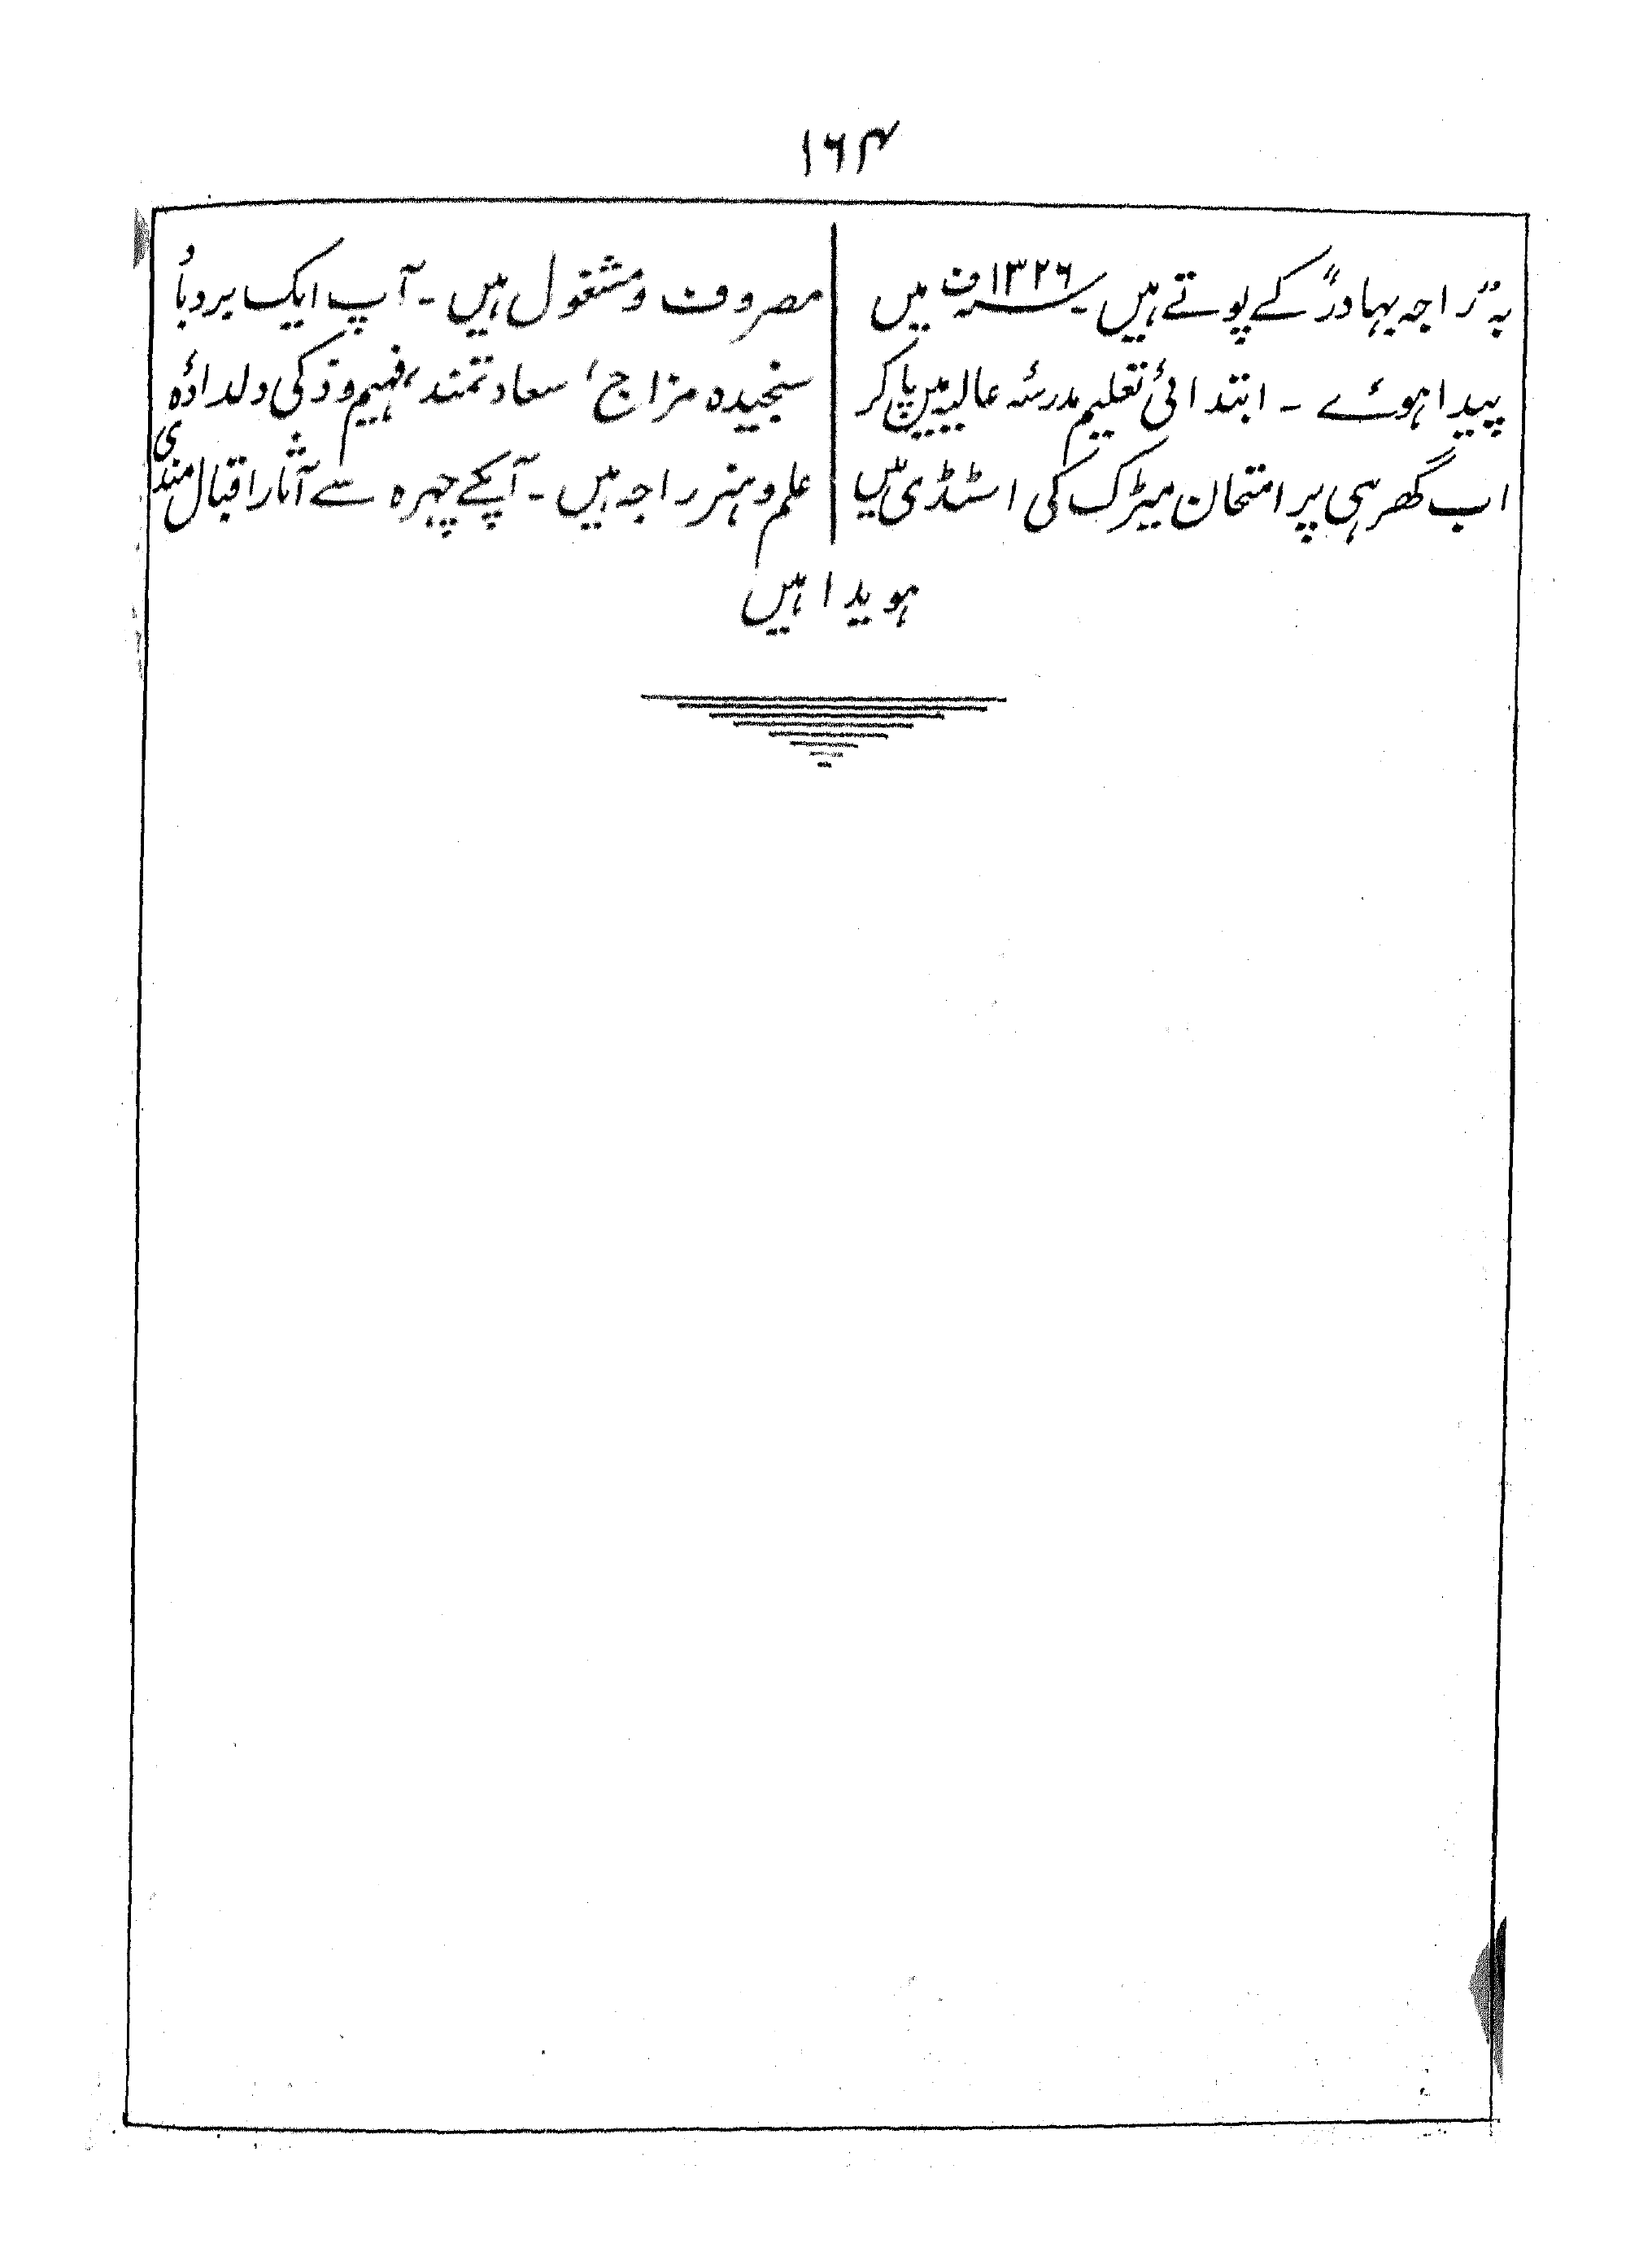 ۱۶۴
بہ ”راجہ بہادر“ کے پوتے ہیں۔ ۱۳۲۶ف میں
پیدا ہوئے ۔ ابتدائی تعلیم مدرسۂ عالیہ میں پا کر
اب گھر ہی پر امتحان میٹرک کی اسٹڈی میں
مصروف و مشغول ہیں ۔ آپ ایک بردبار و
سنجیدہ مزاج، سعادتمند، فہیم و ذکی دلدادۂ
علم و ہنر راجہ ہیں ۔ آپکے چہرہ سے آثار اقبال مندی
ہویدا ہیں